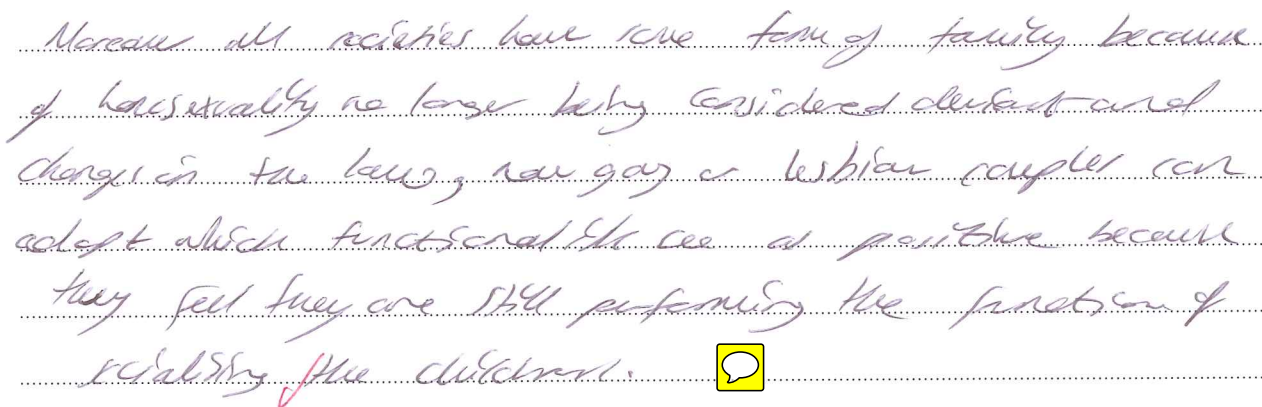 Moreover all societies have some form of family because
of homosexuality no longer being considered deviant and
changes in the laws, now gay or lesbian couples can
adopt which functionalists see as positive because
they feel they are still performing the function of
socialising the children.